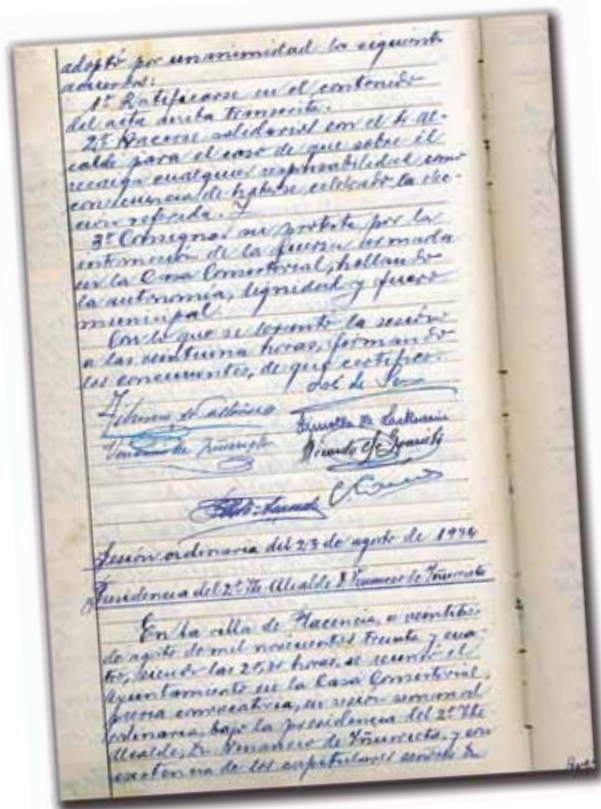 adoptó por unanimidad los siguientes
acuerdos:
1º Ratificarse en el contenido
del acta arriba transcrita.
2º Hacerse solidarios con el Sr Al-
calde para el caso de que sobre él
recaiga cualquier responsabilidad como
consecuencia de haberse celebrado la elec-
ción referida. Y
3º Consignar su protesta por la
intromisión de la fuerza armada
en la Casa Consistorial, hollando
la autonomía, dignidad y fuero
municipal.
Con lo que se levantó la sesión
a las veintiuna horas, firmando
los concurrentes, de que certifico.
José de
Venancio de Iñurrieta
Ricardo de
Sesión ordinaria del 23 de agosto de 1934
Presidencia del 2º Tte Alcalde D. Venancio de Iñurrieta
En la villa de Placencia, a veintitrés
de agosto de mil novecientos treinta y cua-
tro, siendo las horas, se reunió el
Ayuntamiento en la Casa Consistorial,
previa convocatoria, en sesión semanal
ordinaria, bajo la presidencia del 2º Tte
Alcalde, D. Venancio de Iñurrieta, y con
asistencia de los capitulares señores